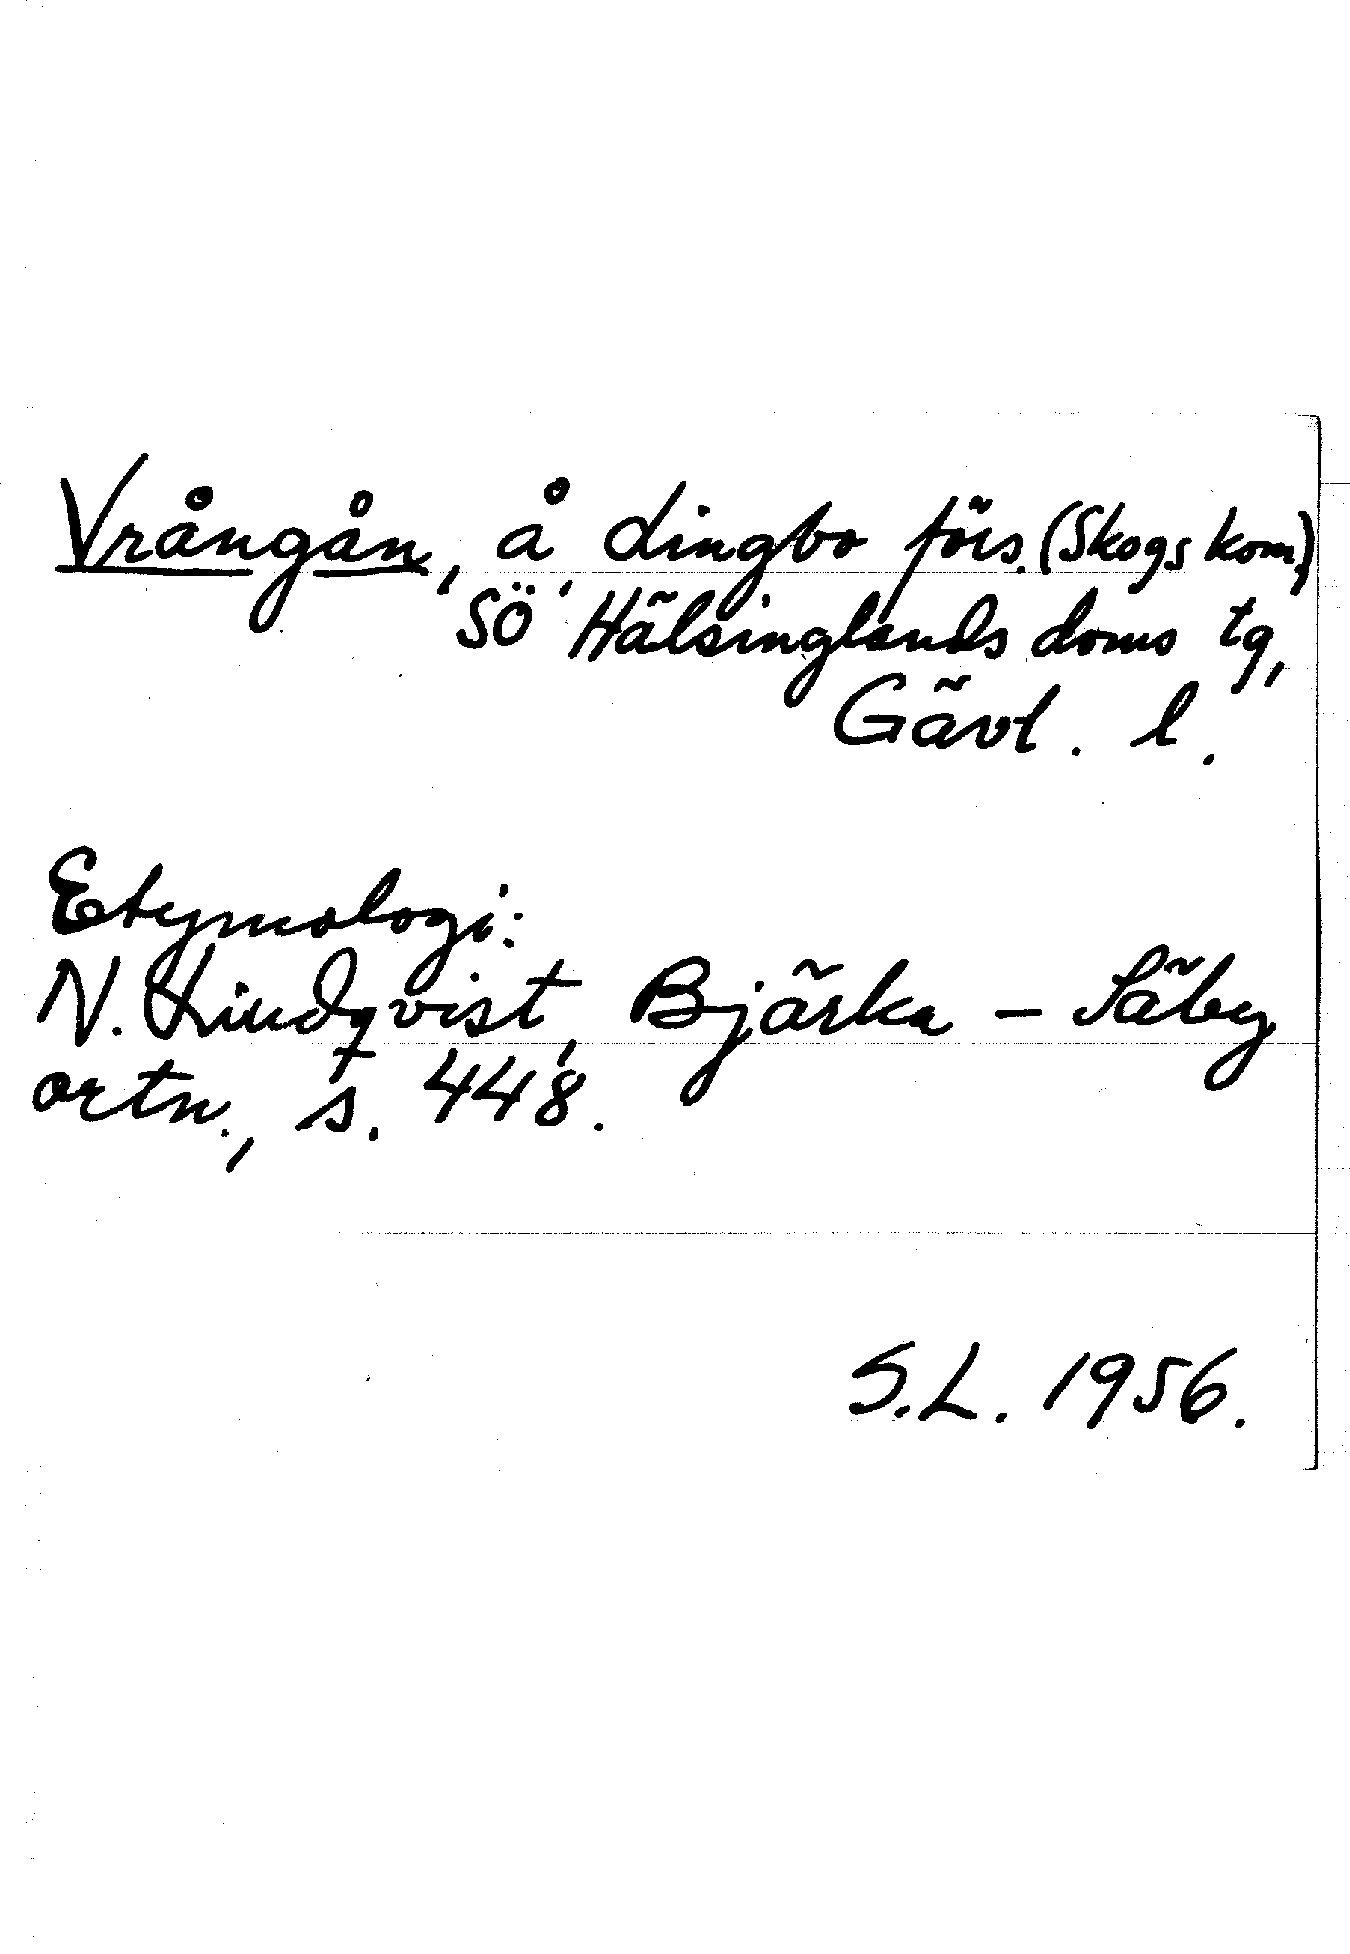 Vrångån, å Lingbo förs. (Skogs kom.)
SÖ Hälsinglands doms tg,
Gävl. l.
Etymologi:
N. Lindqvist, Bjärka - Säby
ortn., s. 448.
S.L. 1956.